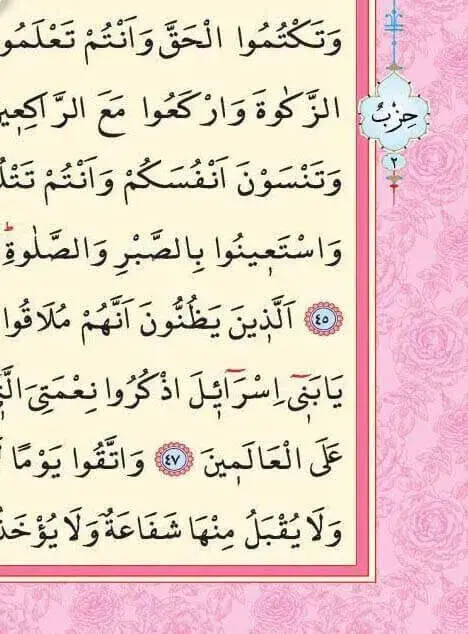 وَتَكْتُمُوا الْحَقَّ وَاَنْتُمْ تَعْلَمُو
الزَّكٰوةَ وَارْكَعُوا مَعَ الرَّاكِعٖين
وَتَنْسَوْنَ اَنْفُسَكُمْ وَاَنْتُمْ تَتْلُ
وَاسْتَعٖينُوا بِالصَّبْرِ وَالصَّلٰوةِؕ
٤٥ اَلَّذٖينَ يَظُنُّونَ اَنَّهُمْ مُلَاقُوا
يَابَنٖٓى اِسْرَٓائٖلَ اذْكُرُوا نِعْمَتِىَ
عَلَى الْعَالَمٖينَ ٤٧ وَاتَّقُوا يَوْمًا
وَلَا يُقْبَلُ مِنْهَا شَفَاعَةٌ وَلَا يُؤْخَذُ
حِزْبُ
٢